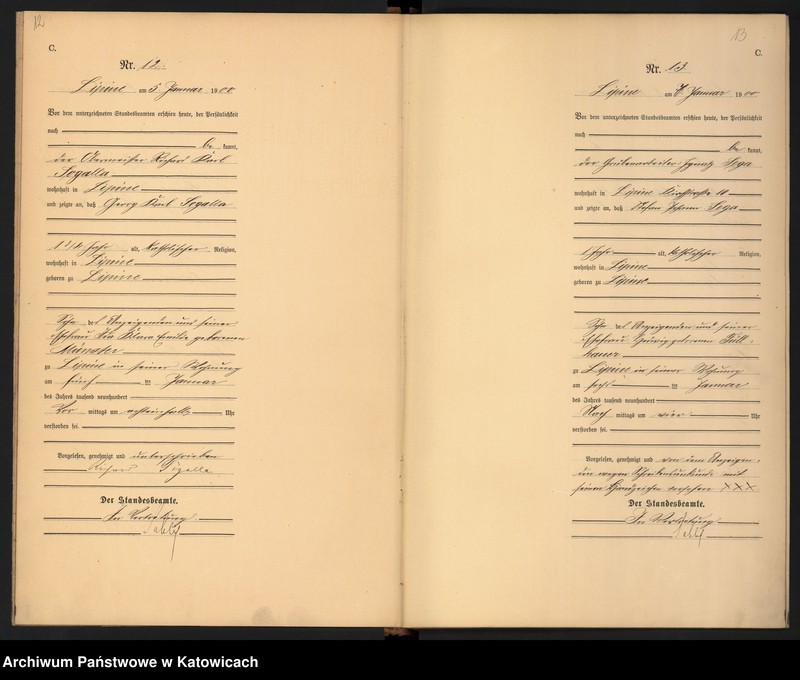 12
C.
Nr. 12.
Lipine am 5 Januar 1900
Vor dem unterzeichneten Standesbeamten erschien heute, der Persönlichkeit
nach
be kannt,
der Obermeister Richard Karl
Sogalla
wohnhaft in Lipine
und zeigte an, daß Georg Karl Sogalla
1 1/4 Jahr alt, katholischer Religion,
wohnhaft in Lipine
geboren zu Lipine
Sohn des Anzeigenden und seiner
Ehefrau Klara Emilie geborenen
Münster
zu Lipine in seiner Wohnung
am fünf ten Januar
des Jahres tausend neunhundert
Vor mittags um achteinhalb Uhr
verstorben sei.
Vorgelesen, genehmigt und unterschrieben
Richard Sogalla
Der Standesbeamte.
In Vertretung
13
C.
Nr. 13
Lipine am Januar 1900
Vor dem unterzeichneten Standesbeamten erschien heute, der Persönlichkeit
nach
be kannt,
der Grubenarbeiter Ignatz
wohnhaft in Lipine
und zeigte an, daß Stefan Johann
1 Jahr alt, katholischer Religion,
wohnhaft in Lipine
geboren zu Lipine
Sohn des Anzeigenden und seiner
Ehefrau Hedwig geborenen
zu Lipine in seiner Wohnung
am sechs ten Januar
des Jahres tausend neunhundert
Nach mittags um vier Uhr
verstorben sei.
Vorgelesen, genehmigt und von dem Anzeigen-
den wegen Schreibensunkunde mit
seinem Handzeichen versehen XXX
Der Standesbeamte.
In Vertretung
Archiwum Państwowe w Katowicach